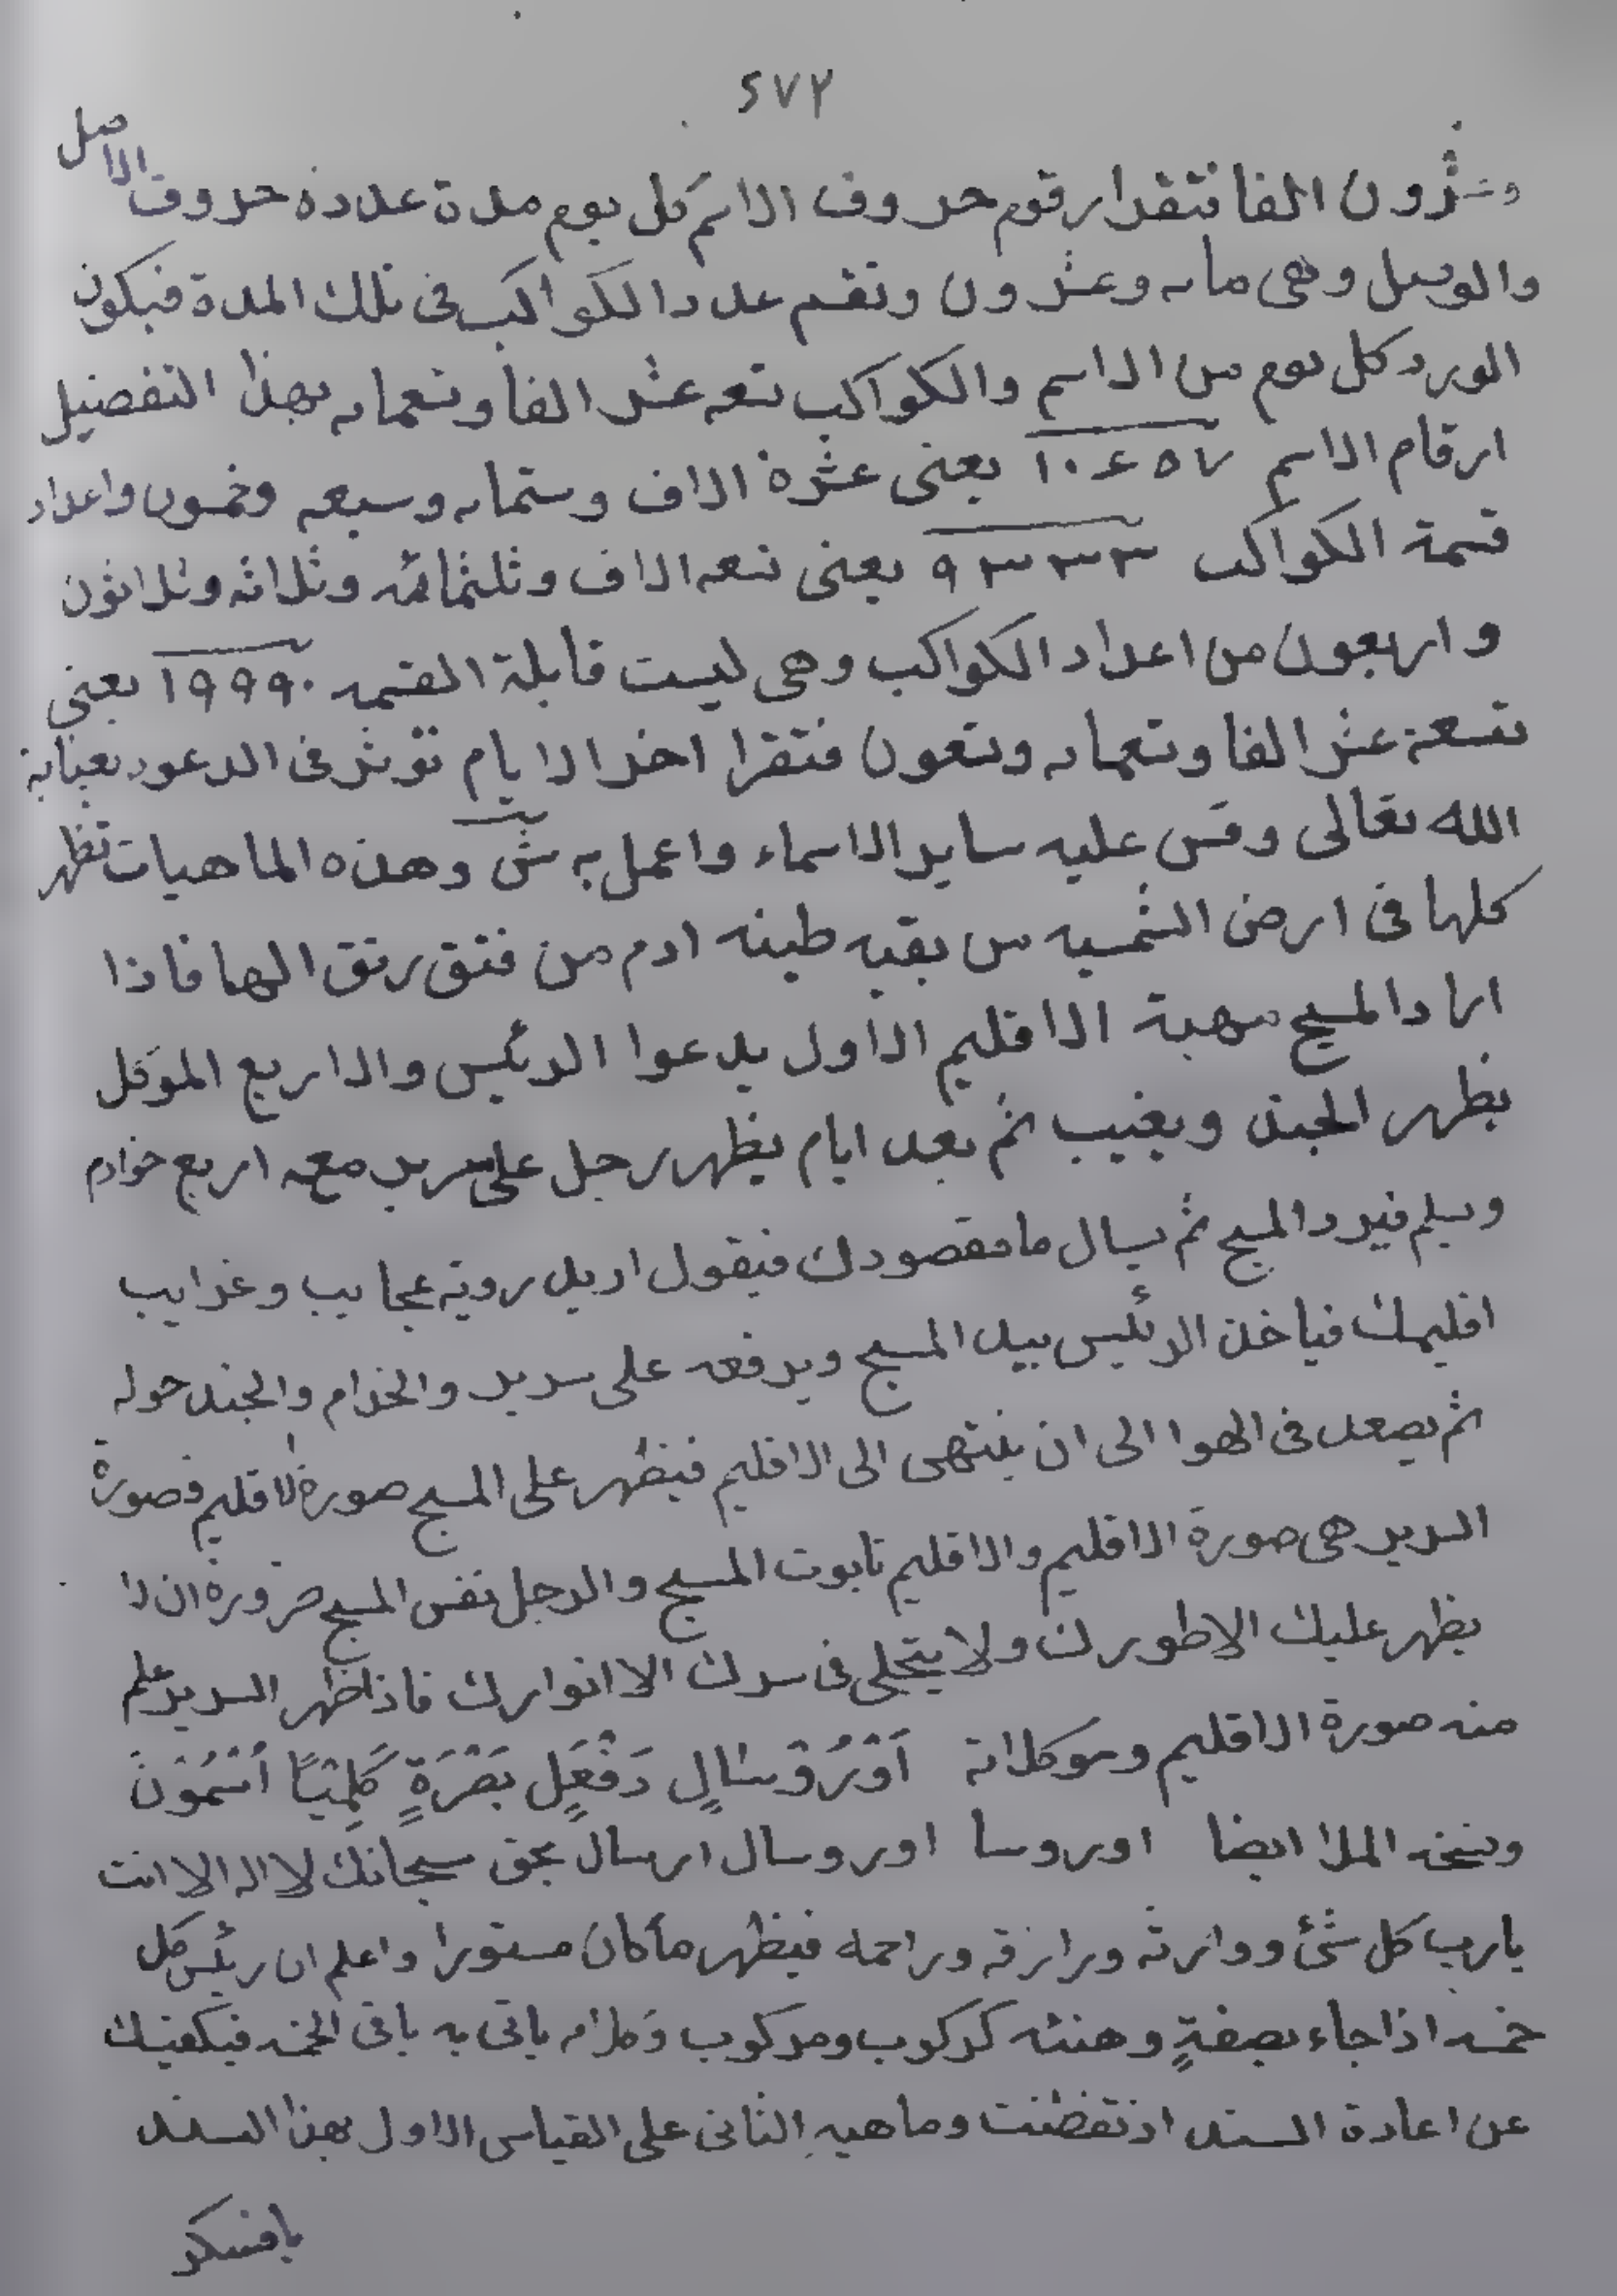 ٤٧٢
وعشرون الفا فتقرا رقوم حروف الاسم كل يوم مدة عدده حروف الاصل
والوصل وهى مايه وعشرون وتقسم عدد الكواكب فى تلك المدة فيكون
الورد كل يوم من الاسم والكواكب تسعه عشر الفا وتسعمايه بهذا التفصيل
ارقام الاسم ١٠٤٥٧ يعنى عشرة الاف وستمايه وسبعه وخمسون واعداد
قسمة الكواكب ٩٣٣٣ يعنى تسعه الاف وثلثمائه وثلاثه وثلاثون
واربعون من اعداد الكواكب وهى ليست قابلة القسمه ١٩٩٩٠ يعنى
تسعة عشر الفا وتسعمايه وتسعون فتقرا اخر الايام تؤثر فى الدعوه بعناية
الله تعالى وقس عليه ساير الاسماء واعمل به وهذه الماهيات تظهر
كلها فى ارض الشمسيه من بقيه طينه ادم من فتق رتق الها فاذا
اراد المسبح مهبة الاقليم الاول يدعوا الرئيس والاربع الموكل
يظهر الجند ويغيب ثم بعد ايام يظهر رجل على سرير معه اربع خوادم
ويسلم فيرد المسبح ثم يسال ما مقصودك فيقول اريد روية عجايب وغرايب
اقليمك فياخذ الرئيس بيد المسبح ويرفعه على سرير والخدام والجند حوله
ثم يصعد فى الهوا الى ان ينتهى الى الاقليم فيظهر على المسبح صورة الاقليم فصورة
السرير هى صورة الاقليم والاقليم تابوت المسبح والرجل نفس المسبح ضرورة ان لا
يظهر عليك الا طورك ولا يتجلى فى سرك الا انوارك فاذا ظهر السرير علم
منه صورة الاقليم وموكلاته اَوْرُوْسَالٍ دَفْعَلٍ بَصْرَةٍ كَلِمِيًا اُسْمُوْنَ
ونسخه الملا ايضا اوروسا اوروسال ارسال بحق سبحانك لا اله الا انت
يارب كل شئ ووارثه ورازقه وراحمه فيظهر ما كان مستورا واعلم ان رئيس كل
خمسه اذا جاء بصفةٍ وهيئه كركوب ومركوب وكلام ياتى به باقى الخمسه فيكفيك
عن اعادة السند اذ تفطنت وماهيه الثانى على القياس الاول بهذا السند